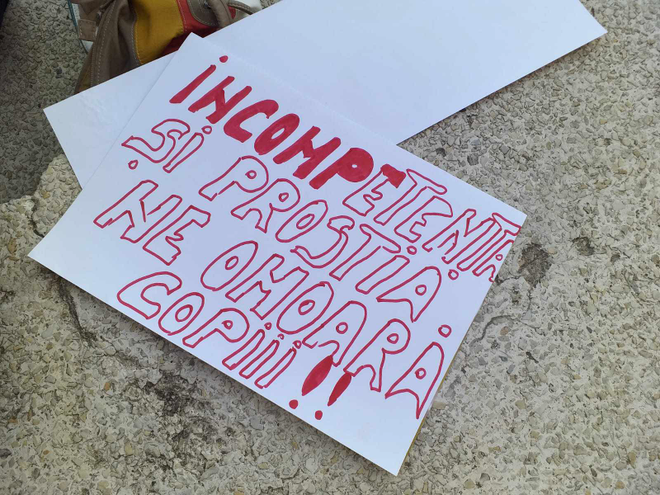 INCOMPETENȚA
ȘI PROSTIA
NE OMOARĂ
COPIII!!